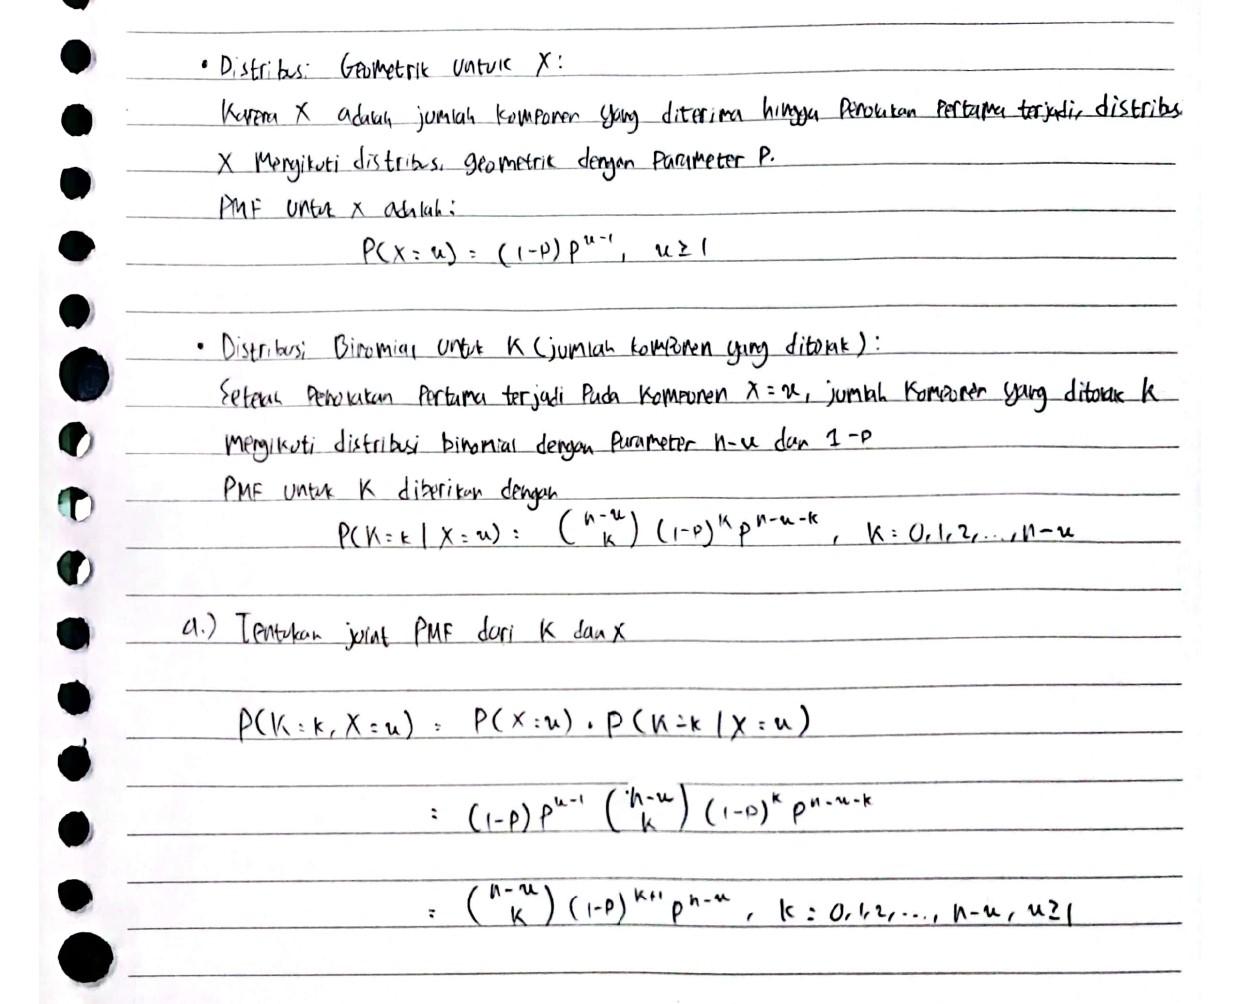 • Distribusi Geometrik untuk X:
Karena X adalah jumlah komponen yang diterima hingga Penolakan Pertama terjadi, distribus
X Mengikuti distribusi geometrik dengan Parameter P.
PMF untuk x adalah:
P(X=x) = (1-p) p^{x-1}, x ≥ 1
• Distribusi Binomial untuk K (jumlah komponen yang ditolak):
Setelah Penolakan Pertama terjadi Pada Komponen X=x, jumlah Komponen yang ditolak k
Mengikuti distribusi binomial dengan Parameter n-x dan 1-p
PMF untuk K diberikan dengan
P(K=k | X=x) = \binom{n-x}{k} (1-p)^k p^{n-x-k}, k = 0,1,2,...,n-x
a.) Tentukan joint PMF dari K dan X
P(K=k, X=x) = P(X=x) . P(K=k | X=x)
= (1-p) p^{x-1} \binom{n-x}{k} (1-p)^k p^{n-x-k}
= \binom{n-x}{k} (1-p)^{k+1} p^{n-x}, k = 0,1,2,..., n-x, x≥1